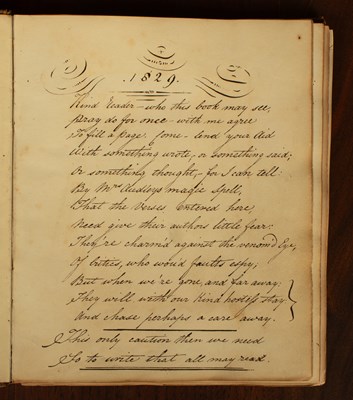 .1829.
Kind Reader – who this book may see,
Pray do for once – with me agree
To fill a page; Come – lend your Aid
With something wrote, or something said;
Or something thought, – for I can tell
By Mrs Audleys magic Spell,
That the Verses Entered here
Need give their authors little fear:
They're charm'd against the venom'd Eye,
Of critics, who wou'd faults espy;
But when we're gone, and far away.
They will with our Kind hostess stay
And chase perhaps a care away.
This only caution then we need
So to write that all may read.